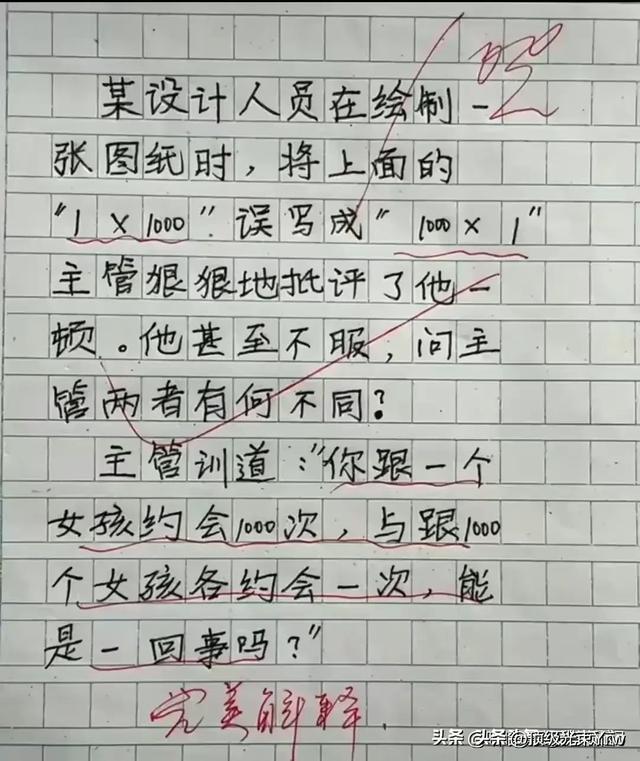 某设计人员在绘制一
张图纸时，将上面的
“1×1000”误写成“1000×1”
主管狠狠地批评了他一
顿。他甚至不服，问主
管两者有何不同？
主管训道：“你跟一个
女孩约会1000次，与跟1000
个女孩各约会一次，能
是一回事吗？”
完美解释.
头条